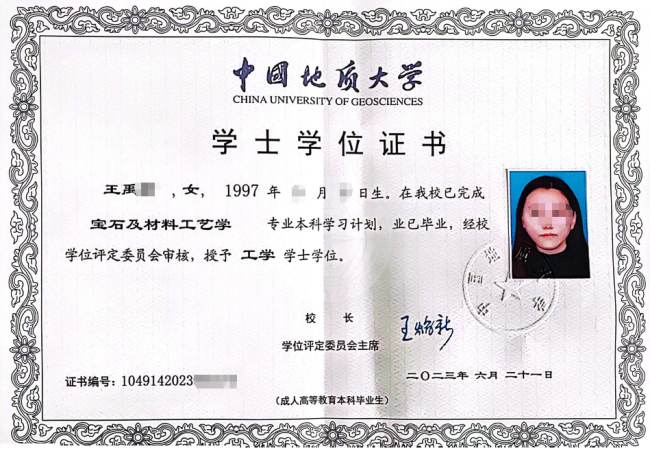 中國地质大学
CHINA UNIVERSITY OF GEOSCIENCES
学士学位证书
王禹 ，女，1997 年 月 日生。在我校已完成
宝石及材料工艺学 专业本科学习计划，业已毕业，经校
学位评定委员会审核，授予 工学 学士学位。
校 长
学位评定委员会主席
证书编号：1049142023
二〇二三年 六月 二十一日
（成人高等教育本科毕业生）